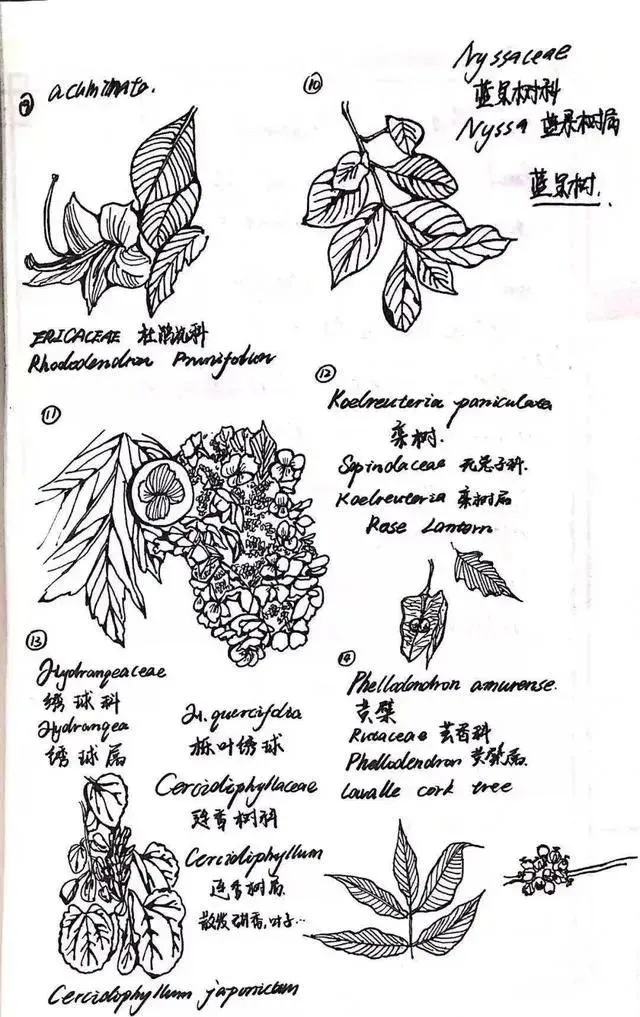 ⑨ acuminata.
ERICACEAE 杜鹃花科
Rhododendron Prunifolium
⑩
Nyssaceae
蓝果树科
Nyssa 蓝果树属
蓝果树.
⑪
⑫
Koelreuteria paniculata
栾树.
Sapindaceae 无患子科.
Koelreuteria 栾树属
Rose Lantern
⑬
Hydrangeaceae
绣球科
Hydrangea
绣球属
H. quercifolia
栎叶绣球
Cercidiphyllaceae
连香树科
Cercidiphyllum
连香树属
Cercidophyllum japonicum
⑭
Phellodendron amurense.
黄檗
Rutaceae 芸香科
Phellodendron 黄檗属.
Lavalle cork tree